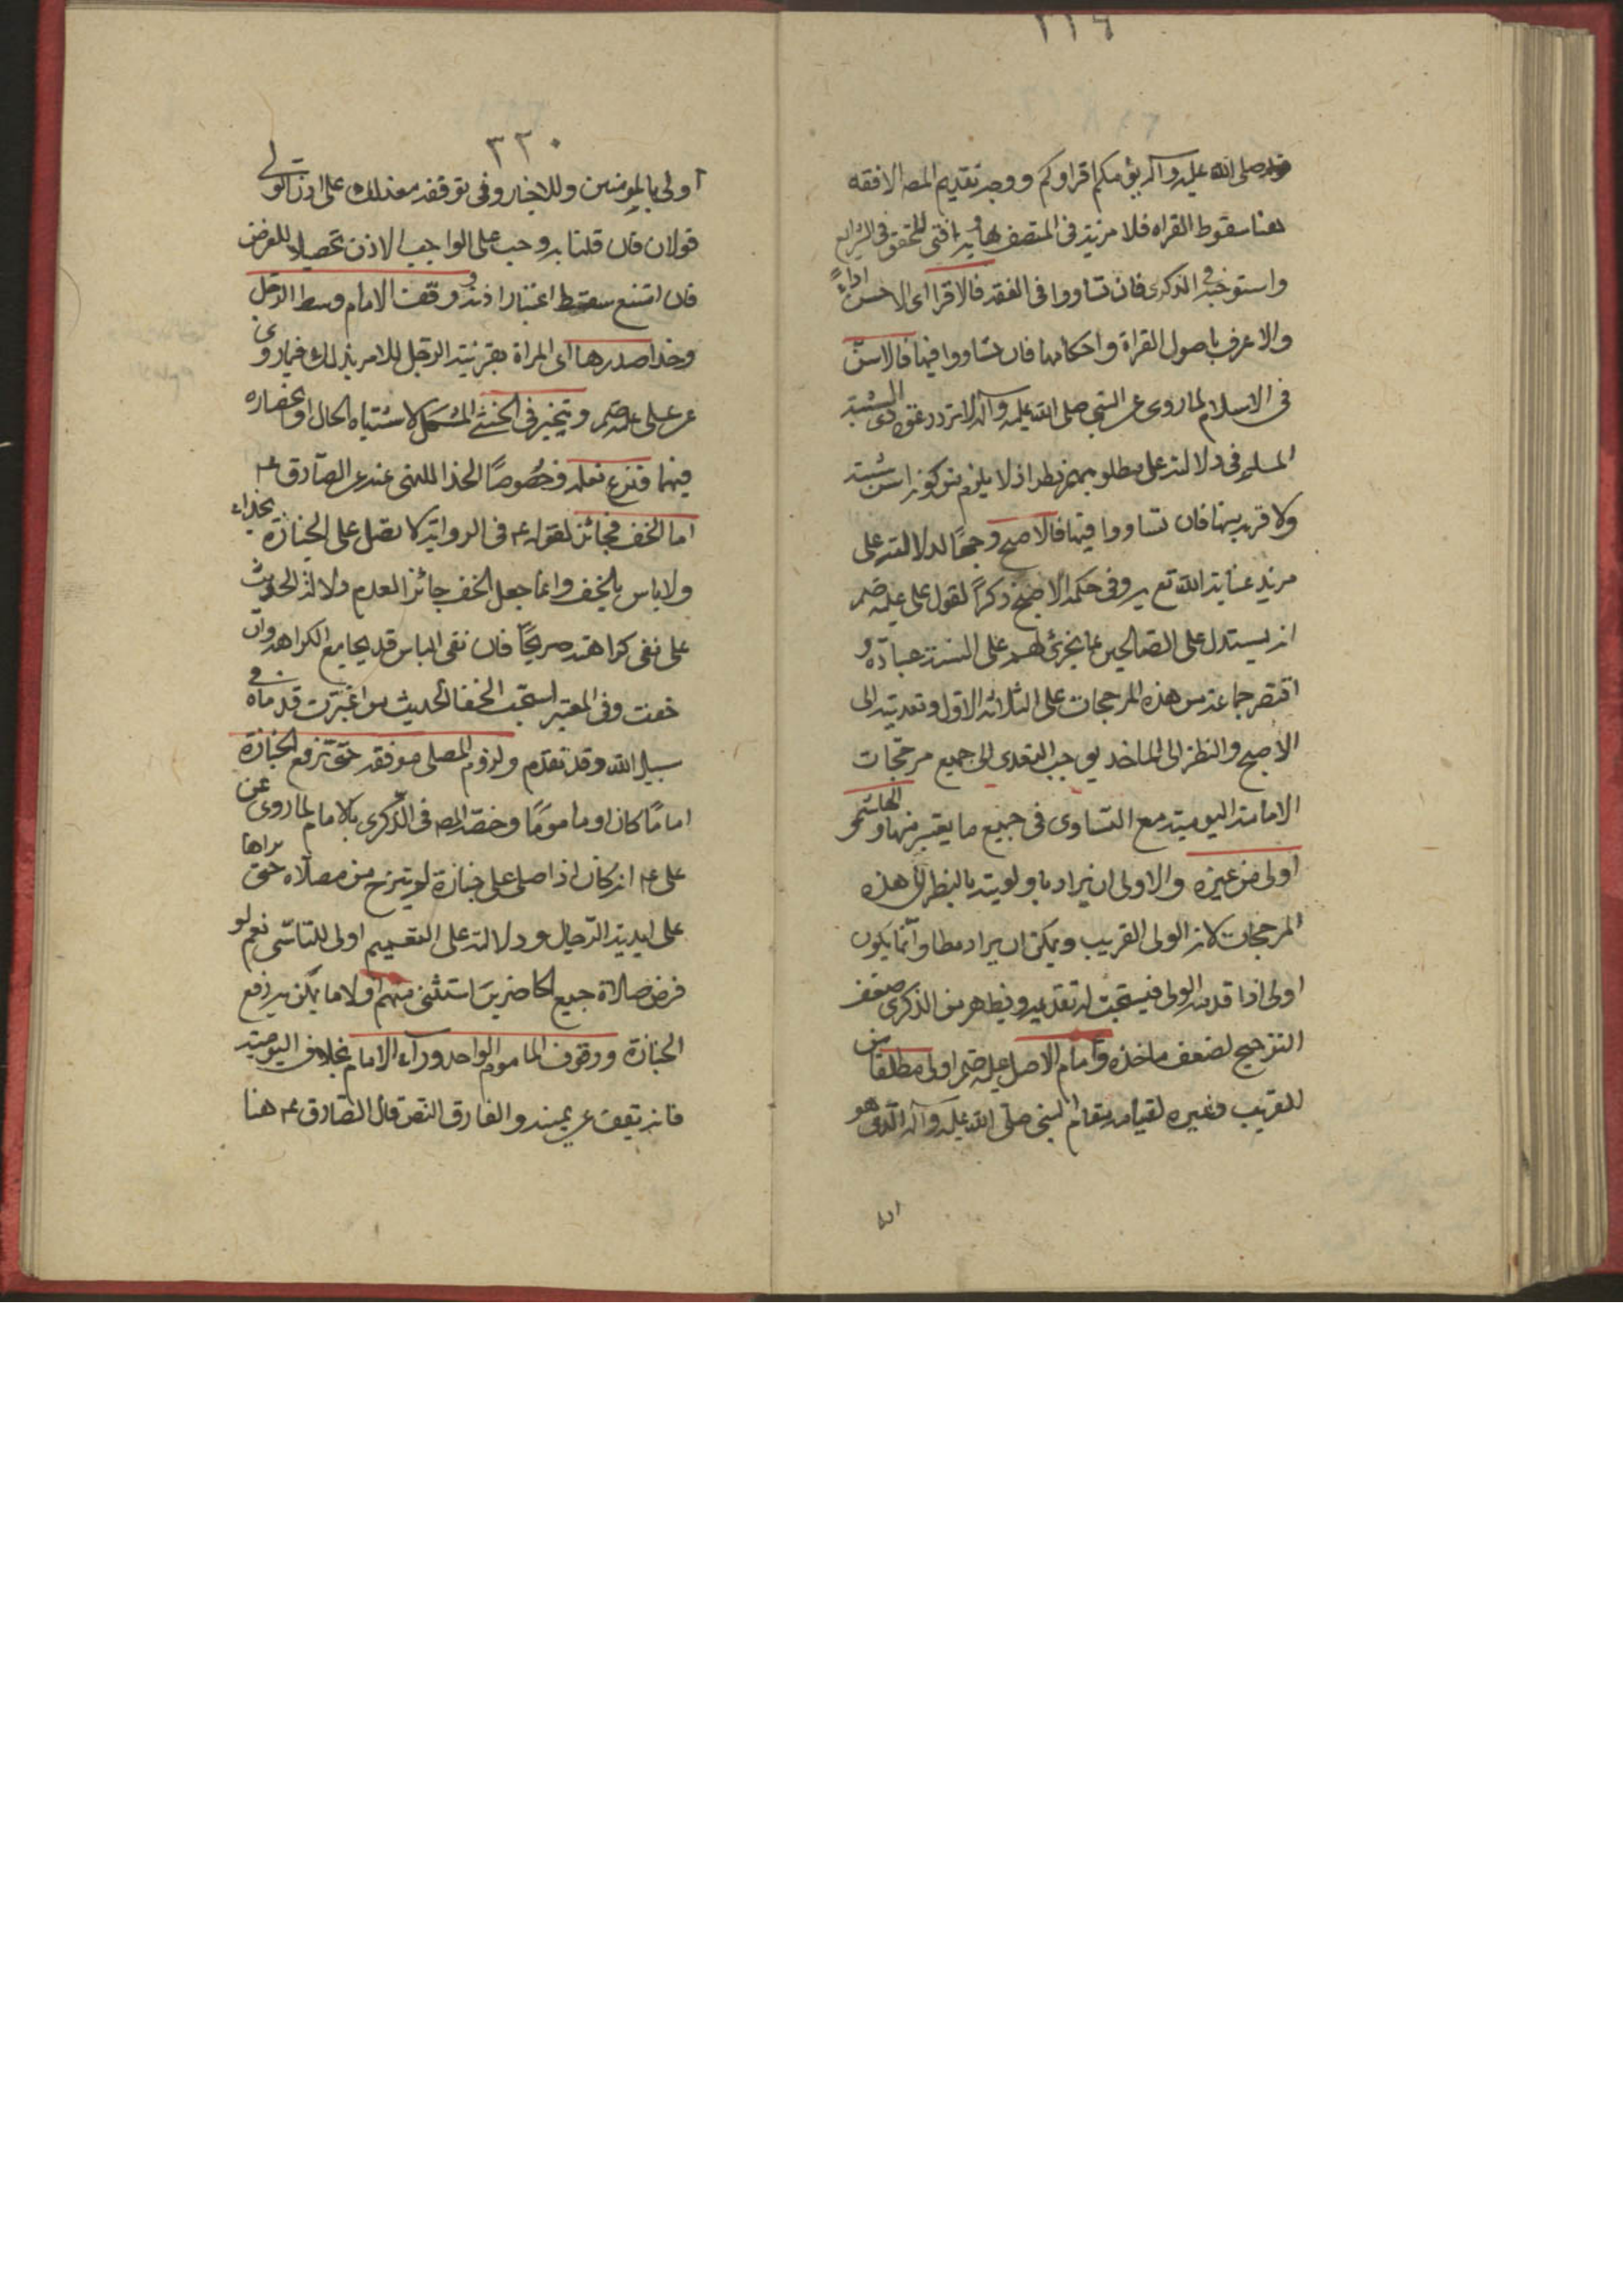 ٣١٩
قوله صلى الله عليه وآله يؤمكم اقراوكم ووجه تقديم المصـ الافقه
هنا سقوط القراه فلا مزيه فى المتصف بها وبه افتى المحقق فى الشرايع
واستوجبه فى الذكرى فان تساووا فى الفقه فالاقرا اى الاحسن اداءً
والاعرف باصول القراة واحكامها فان تساووا فيها فالاسنّ
فى الاسلام لما روى عن النبي صلى الله عليه وآله لا ترد دعوة ذى الشيبة
المسلم وفى دلالته على مطلوبهم نظر اذ لا يلزم من كونه اسن شيبته
ولا قربه منها فان تساووا فيها فالاصبح وجهًا لدلالته على
مزيد عناية الله تع به وفى حكمه الاصبح ذكرًا لقول على عليه السلم
انه يستدل على الصالحين بما يجرى لهم على السنة عباده و
اقتصر جماعة من هذه المرجحات على الثلاثة الاول وتعديته الى
الاصبح والنظر الى الماخذ يوجب التعدى الى جميع مرجّحات
الامامة اليومية مع التساوى فى جميع ما يعتبر منها والهاشمى
اولى من غيره والاولى ان يراد باولويته بالنظر الى هذه
المرجحات لا انه الولى القريب ويمكن ان يراد مطلقا وانّما يكون
اولى اذا قدمه الولى فيستحب له تقديمه ويظهر من الذكرى ضعف
الترجيح لضعف ماخذه وامام الاصل عليه السلم اولى مطلقا من
القريب وغيره لقيامه مقام النبى صلى الله عليه وآله الّذى هو
٣٢٠
اولى بالمؤمنين وللاخبار وفى توقفه مع ذلك على اذن الولى
قولان فان قلنا به وجب على الواجب الاذن تحصيلا للغرض
فان امتنع سقط اعتبار اذنه ووقف الامام وسط الرجل
وحذا صدرها اى المراة بقرينة الرجل للامر بذلك فيما روى
عن على عليه السلم ويتخير فى الخنثى المشكل لاشتباه الحال
فيهما ونزع نعله وخصُوصًا الحذا للنهى عنه عن الصّادق ع
اما الخف فجائز لقوله ع فى الرواية لا يصل على الجنازة بحذاء
ولا باس بالخف وانما جعل الخف جائزا لعدم دلالة الحديث
على نفى كراهته صريحًا فان نفى الباس قد يجامع الكراهة وان
خفت وفى المعتبر استحب الحفا لحديث من اغبرت قدماه فى
سبيل الله وقد تقدم ولزوم المصلى موقفه حتى ترفع الجنازة
امامًا كان او مامومًا وخصّه المصـ فى الذّكرى بالامام لما روى عن
على ع انه كان اذا صلى على جنازة لم يبرح من مصلّاه حتى يراها
على ايدى الرّجال ودلالته على التعميم اولى للتاسّى نعم لو
فرض صلاة جميع الحاضرين استثنى منهم اولا ما يمكن به رفع
الجنازة ووقوف الماموم الواحد ورآء الامام بخلاف اليومية
فانه يقف عن يمينه والفارق النص قال الصّادق ع هنا